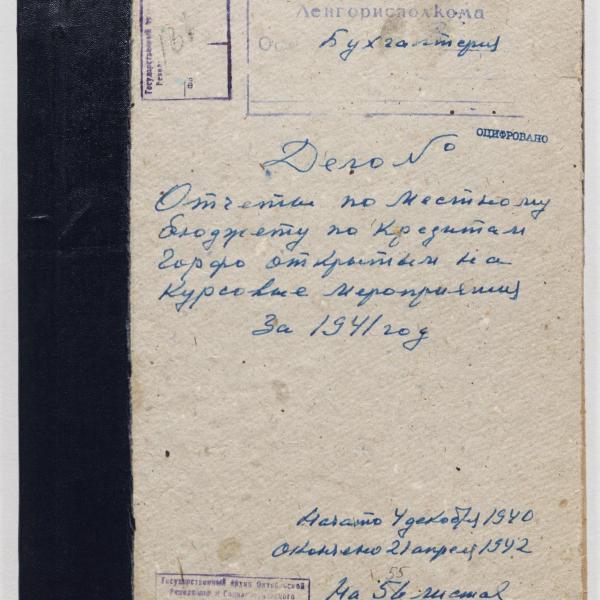 Ленгорисполкома
Бухгалтерия
Государственный
ОЦИФРОВАНО
Дело №
Отчеты по местному
бюджету по кредитам
Горфо открытым на
курсовые мероприятия
За 1941 год
Начато 4 декабря 1940
Окончено 21 апреля 1942
55
На 56 листах
Государственный Архив Октябрьской
Революции и Социалистического